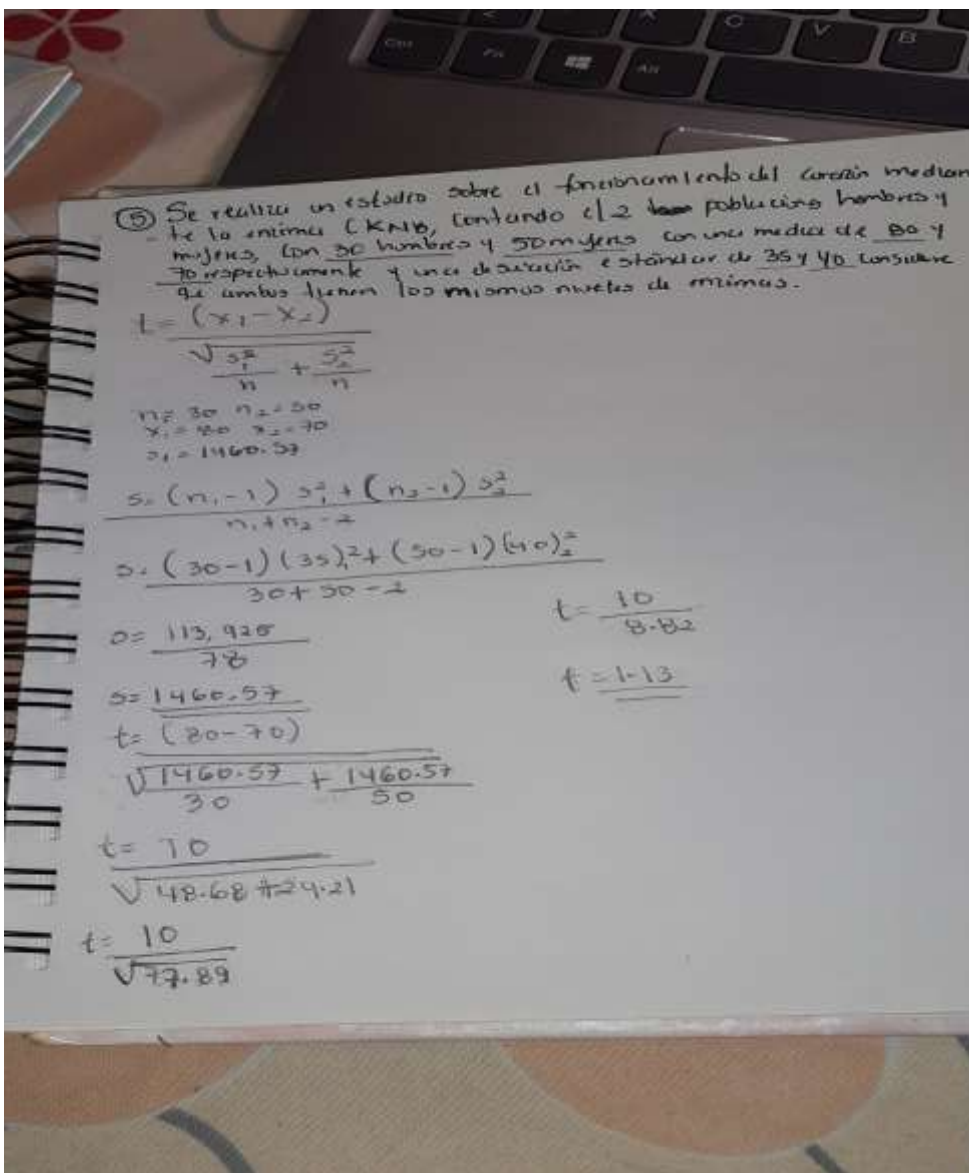 Ctrl Fn Alt X C V B
⑤ Se realiza un estudio sobre el funcionamiento del corazón median
te la enzima CKMB, contando el 2 poblacions hombres y
mujeres, con 30 hombres y 50 mujeres con una media de 80 y
70 respectivamente y una desviación estándar de 35 y 40 considere
qe ambos tienen los mismos niveles de enzimas.
t= (x₁-x₂)
√ s₁²/n + s₂²/n
n₁= 30 n₂=50
x₁=80 x₂=70
s₁=1460.57
s= (n₁-1) s₁² + (n₂-1) s₂²
n₁+n₂-2
s= (30-1)(35)₁²+(50-1)(40)₂²
30+50-2
s= 113,925
78
s= 1460.57
t= (80-70)
√ 1460.57/30 + 1460.57/50
t= 10
√ 48.68+29.21
t= 10
√77.89
t= 10
8.82
t=1.13